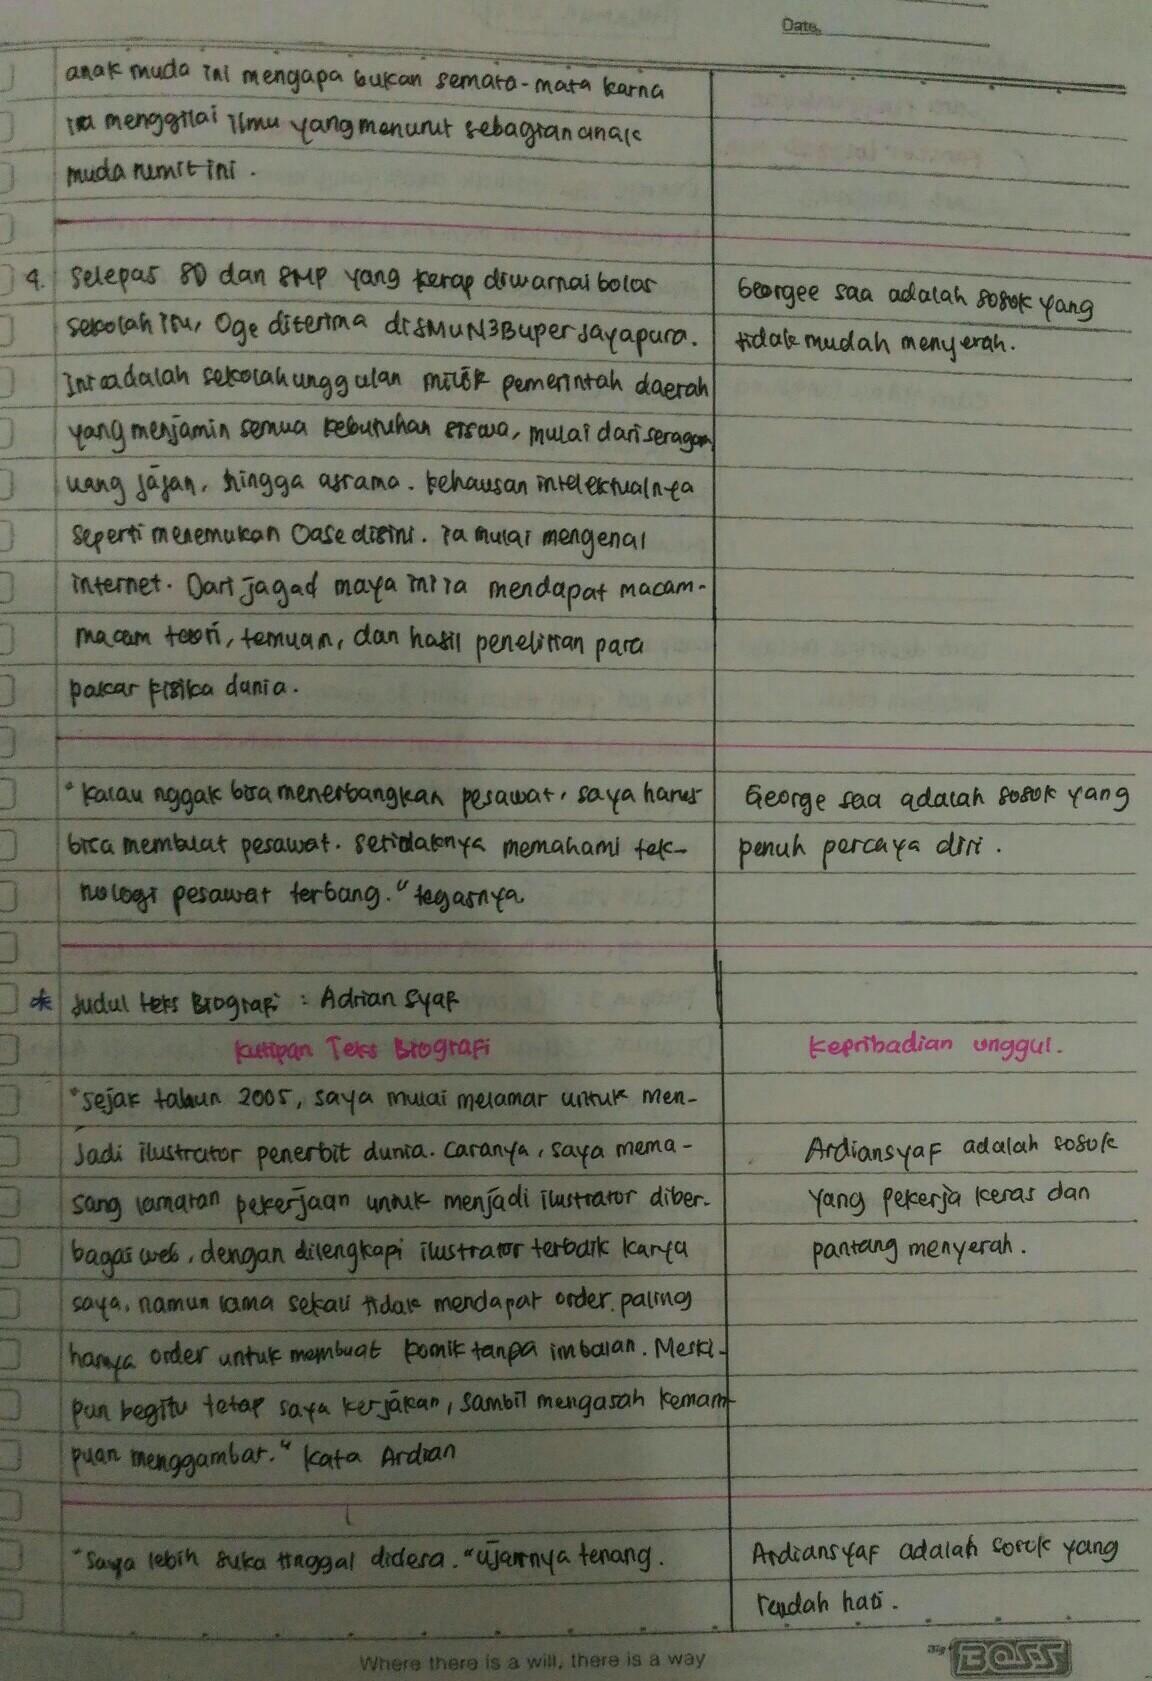 Date.
anak muda ini mengapa bukan semata-mata karna
ia menggilai ilmu yang menurut sebagian anak
muda rumit ini.
4. Selepas SD dan SMP yang kerap diwarnai bolos
sekolah itu, Oge diterima di SMUN 3 Buper Jayapura.
Ini adalah sekolah unggulan milik pemerintah daerah
yang menjamin semua kebutuhan siswa, mulai dari seragam
uang jajan, hingga asrama. kehausan intelektualnya
seperti menemukan Oase disini. ia mulai mengenal
internet. Dari jagad maya ini ia mendapat macam-
macam teori, temuan, dan hasil penelitian para
pakar fisika dunia.
Georgee saa adalah sosok yang
tidak mudah menyerah.
"Kalau nggak bisa menerbangkan pesawat, saya harus
bisa membuat pesawat. Setidaknya memahami tek-
nologi pesawat terbang." tegasnya
George saa adalah sosok yang
penuh percaya diri.
* Judul teks Biografi : Adrian Syaf
Kutipan Teks Biografi
Kepribadian unggul.
"Sejak tahun 2005, saya mulai melamar untuk men-
jadi ilustrator penerbit dunia. Caranya, saya mema-
sang lamaran pekerjaan untuk menjadi ilustrator diber-
bagai web, dengan dilengkapi ilustrator terbaik karya
saya, namun lama sekali tidak mendapat order. paling
hanya order untuk membuat komik tanpa imbalan. Meski-
pun begitu tetap saya kerjakan, sambil mengasah kemam-
puan menggambar." kata Ardian
Ardiansyaf adalah sosok
yang pekerja keras dan
pantang menyerah.
"Saya lebih suka tinggal didesa." ujarnya tenang.
Ardiansyaf adalah sosok yang
rendah hati.
Where there is a will, there is a way
Big BOSS